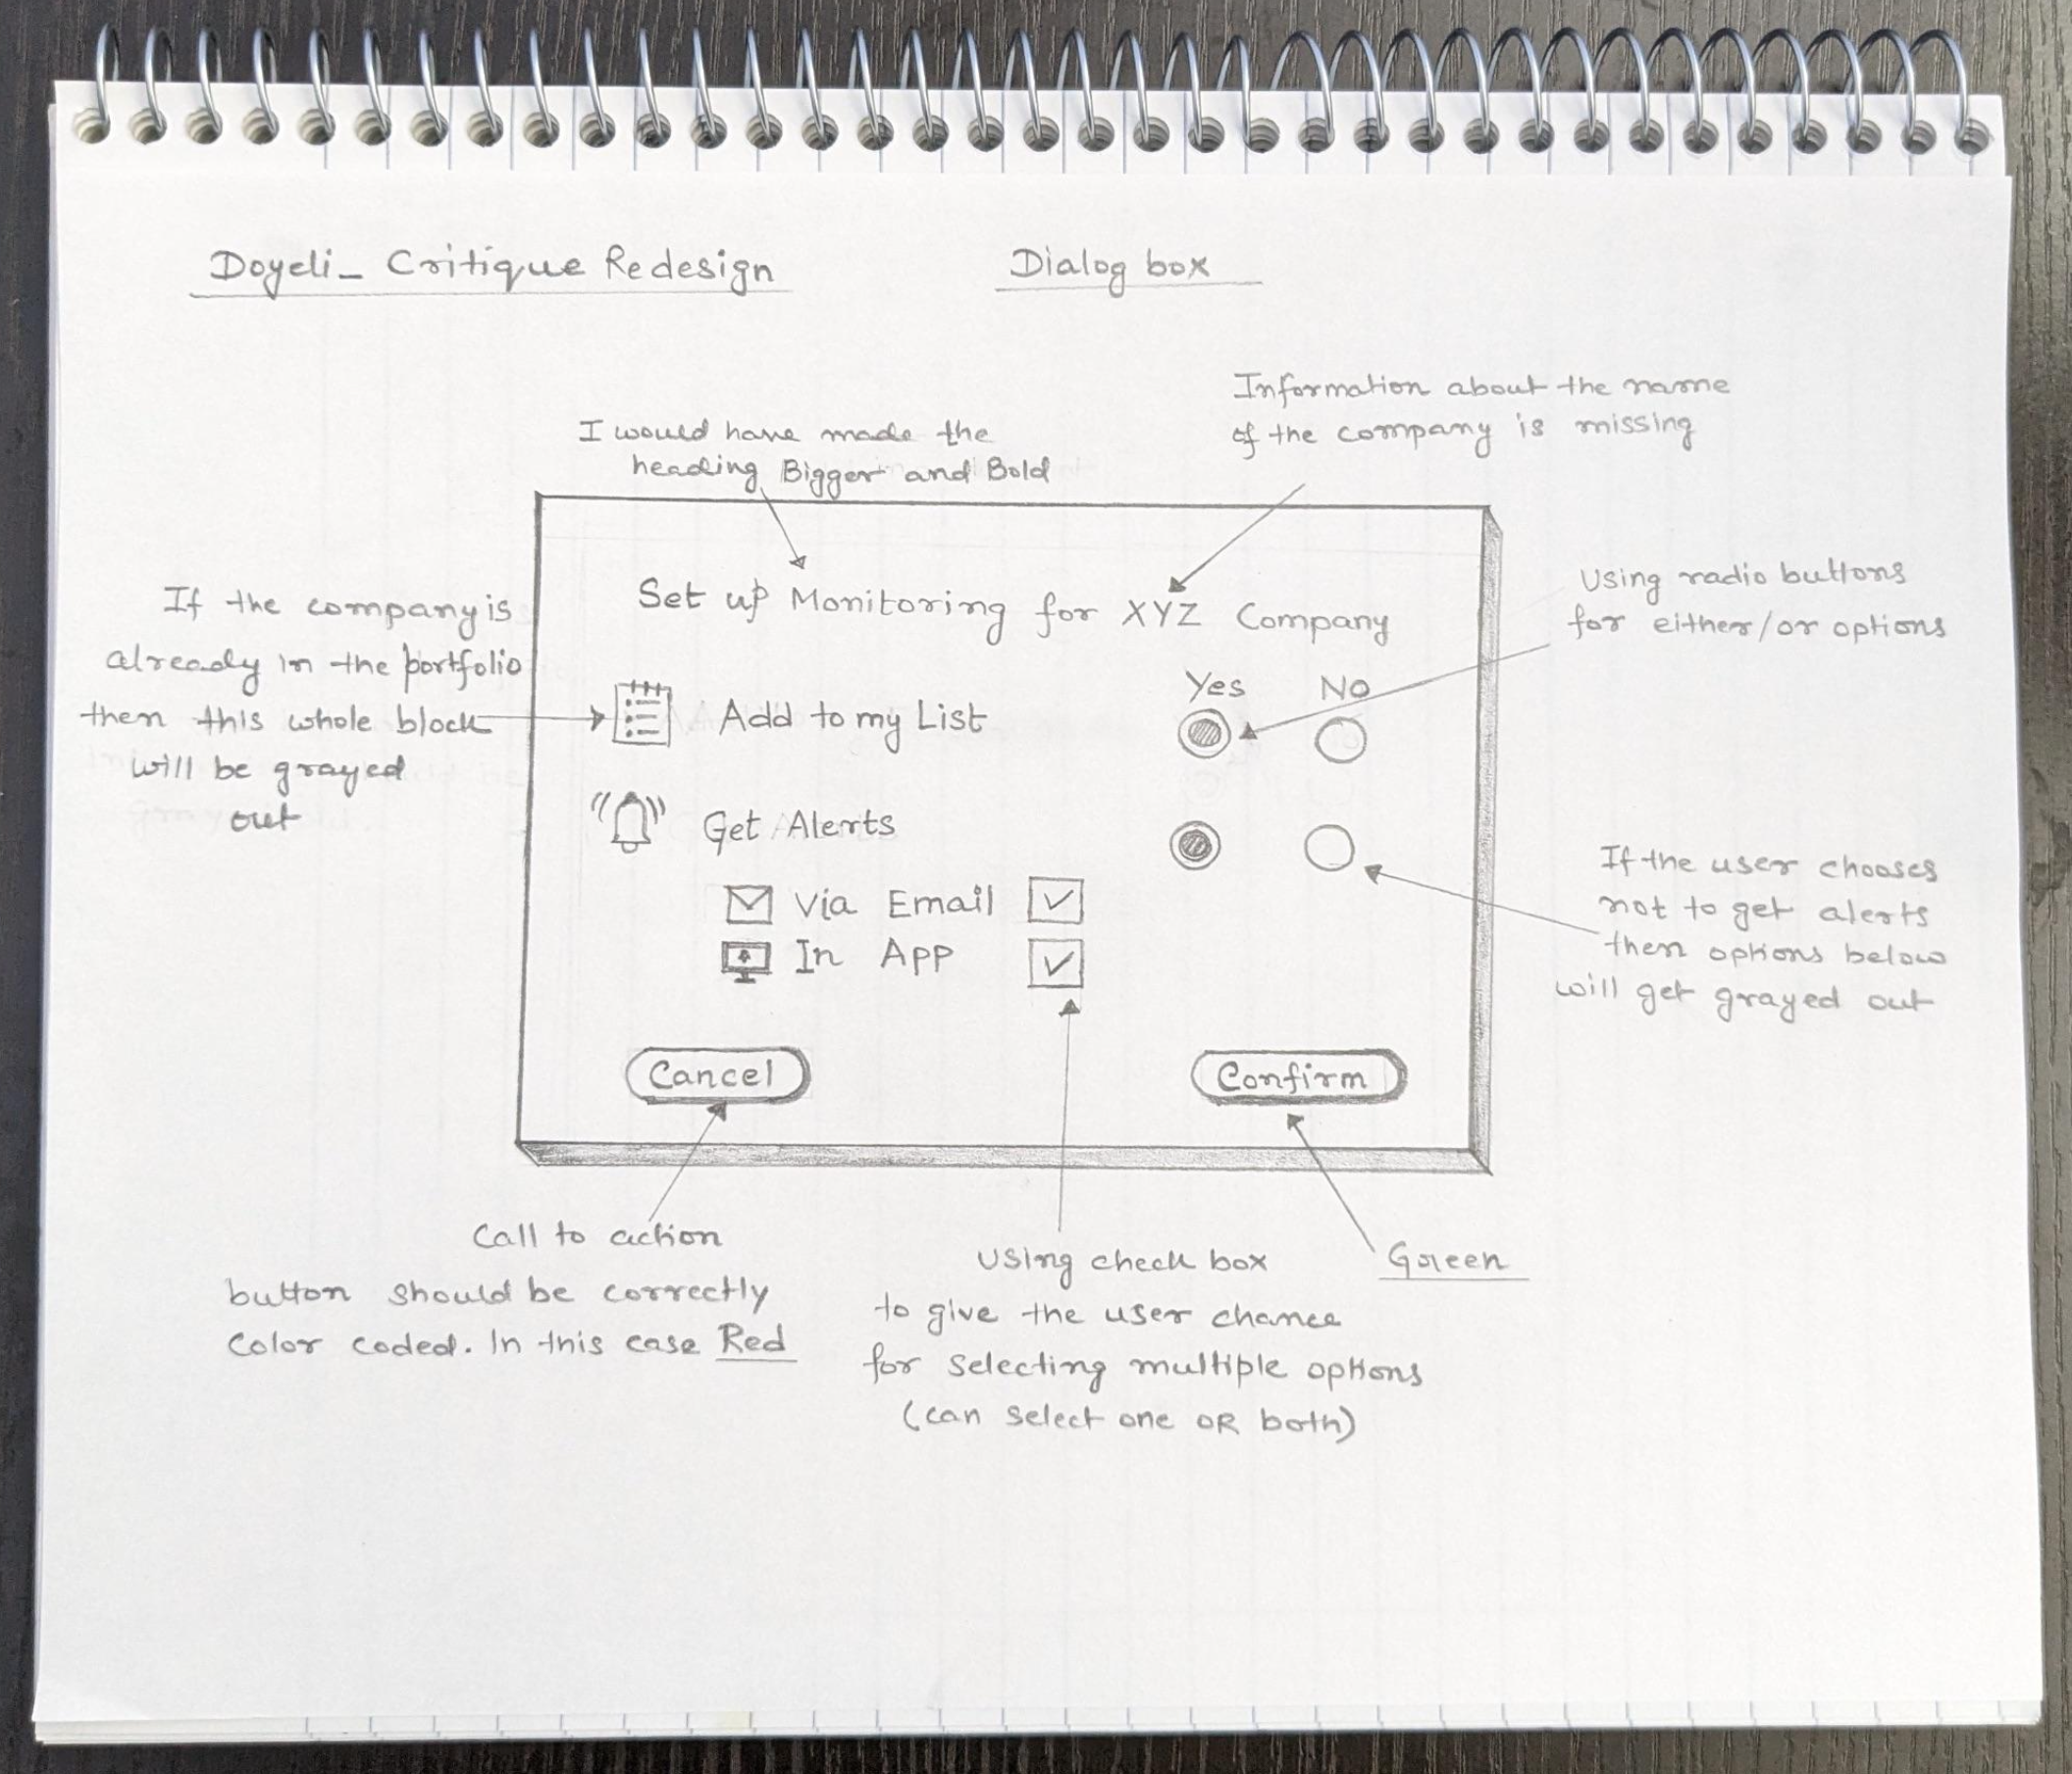 Doyeli_ Critique Redesign
Dialog box
I would have made the
heading Bigger and Bold
Information about the name
of the company is missing
If the company is
already in the portfolio
then this whole block
will be grayed
out
Using radio buttons
for either/or options
Set up Monitoring for XYZ Company
Yes No
Add to my List
Get Alerts
Via Email
In App
If the user chooses
not to get alerts
then options below
will get grayed out
Cancel
Confirm
Call to action
button should be correctly
color coded. In this case Red
Using check box
to give the user chance
for selecting multiple options
(can select one OR both)
Green